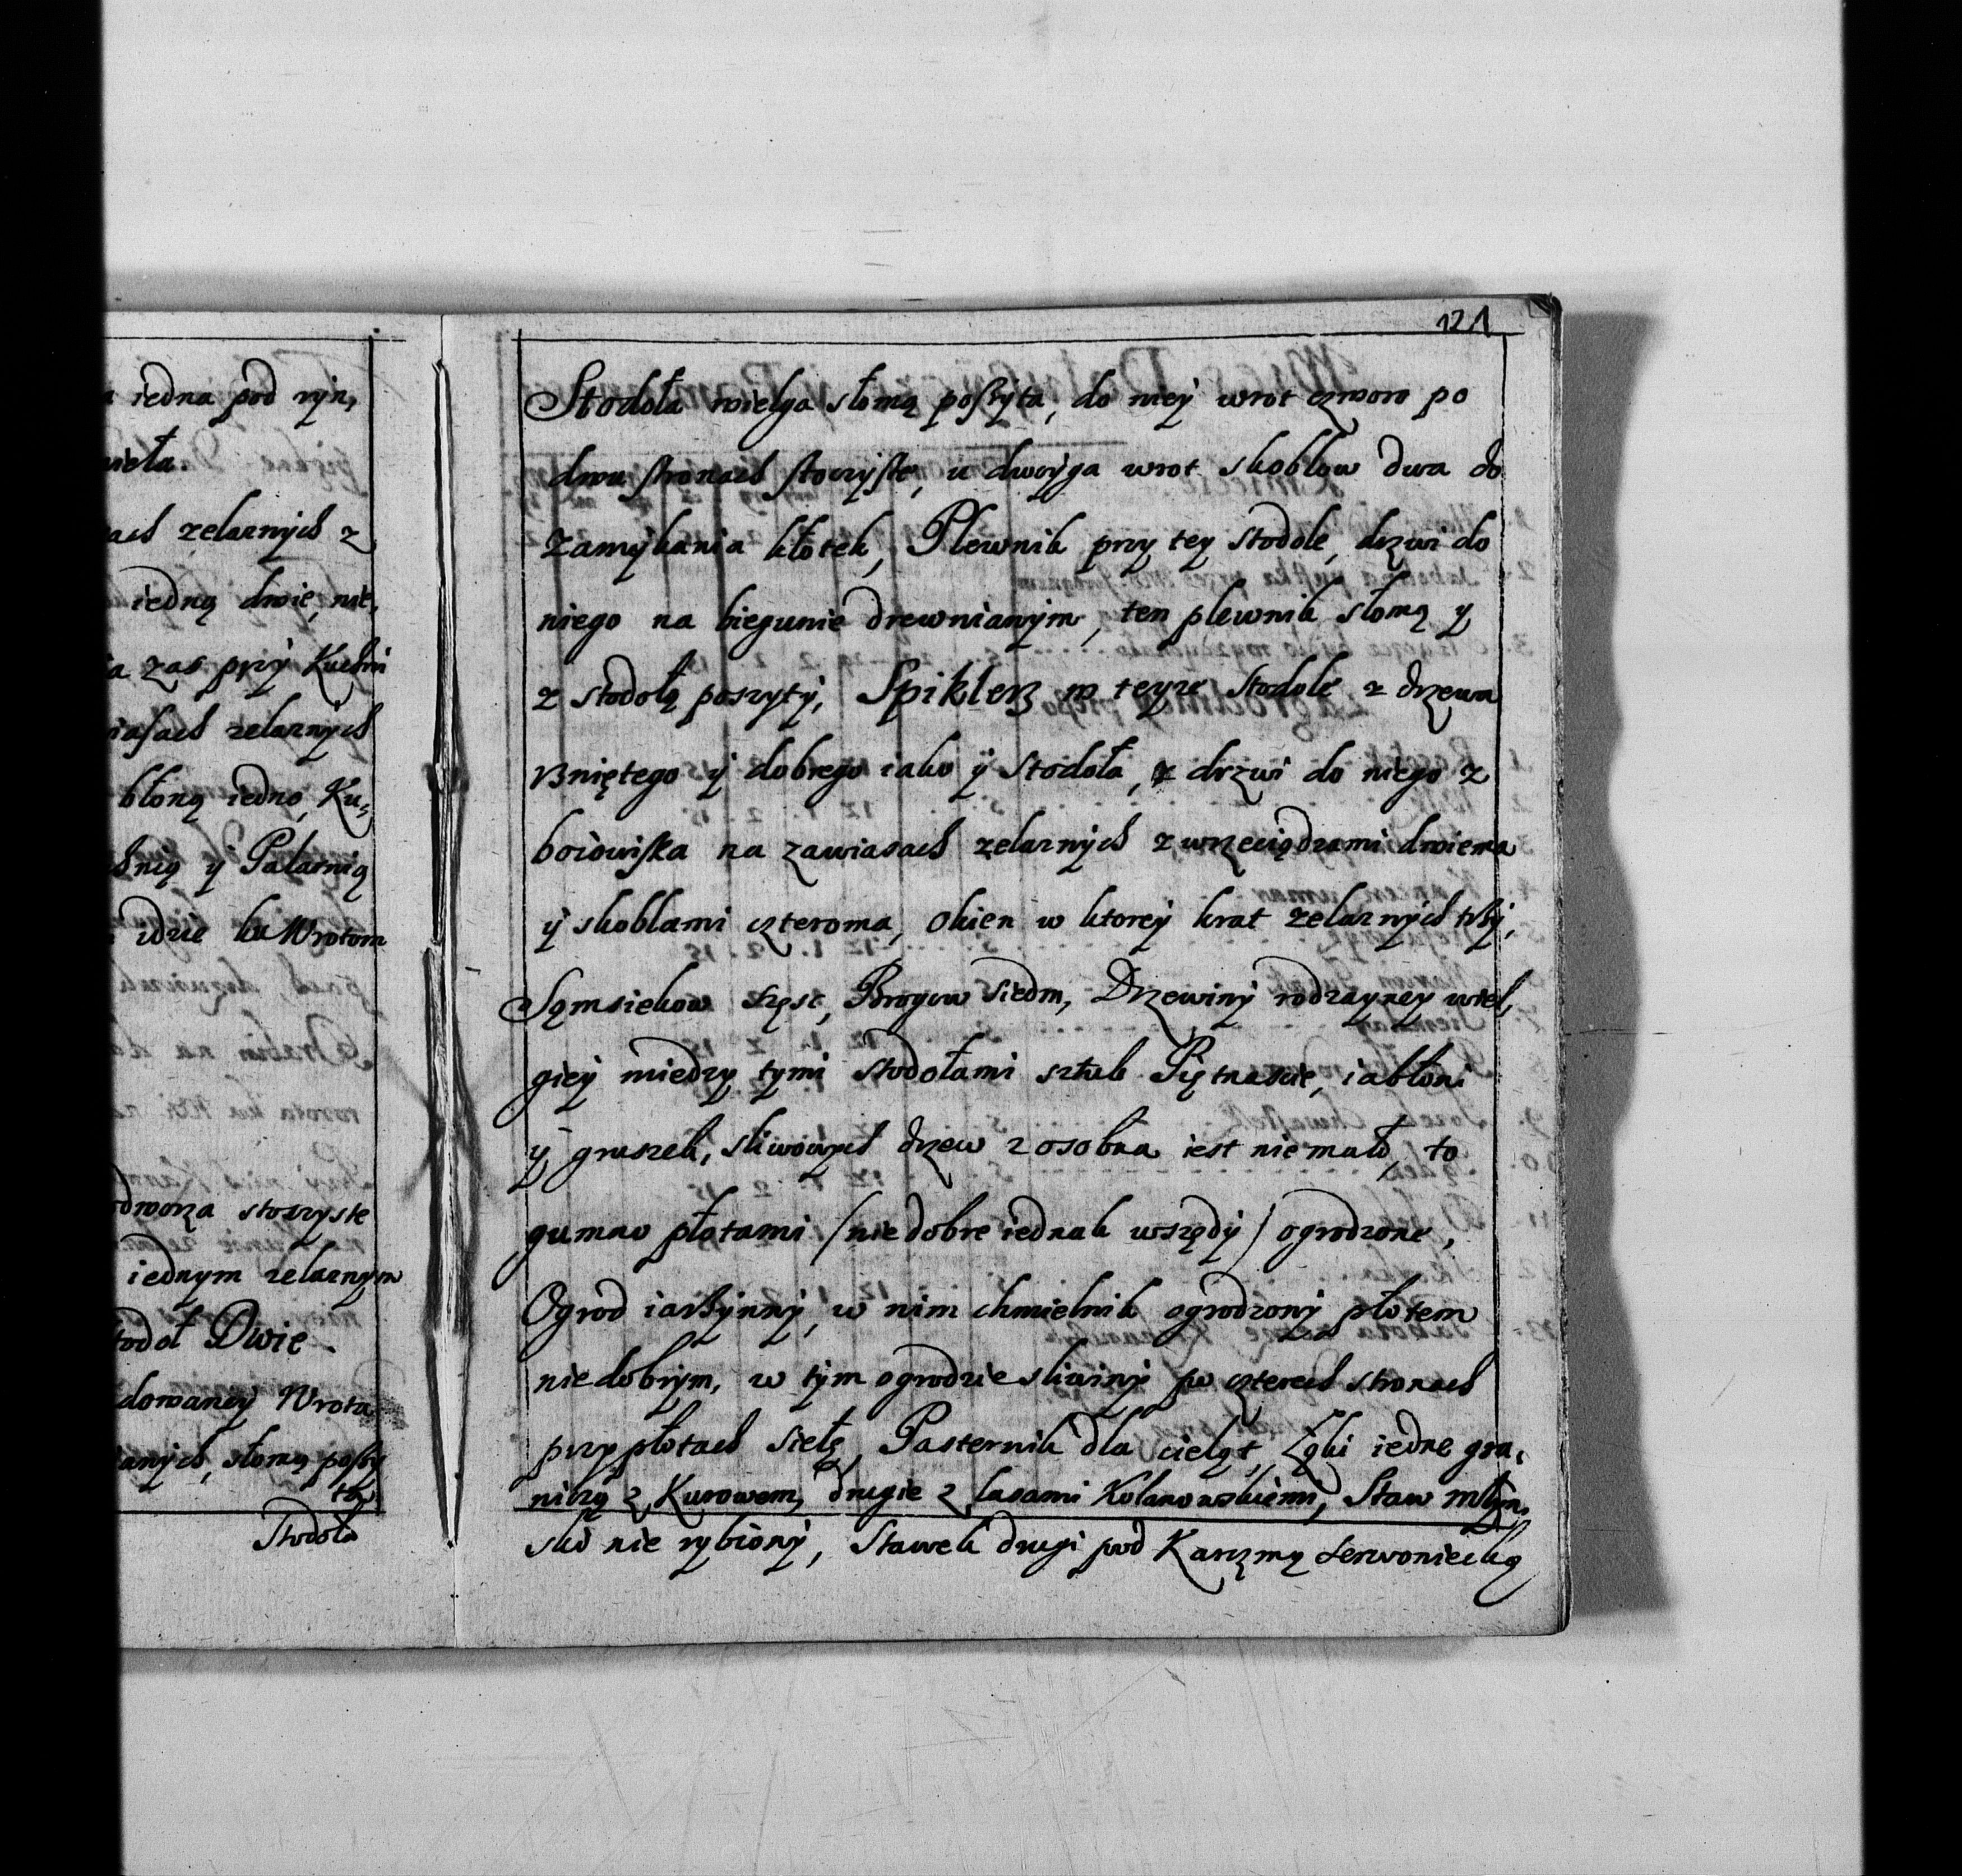 iedna pod ryn,
mieła.
ach zelaznych z
iedną dwie, nie,
a zas przy Kuchni
iasach zelaznych
błoną iedno, Ku,
chnią ÿ Palarnią
idzie ku Wrotom
dworza stoczyste
iednym zelaznym
todoł Dwie.
dowaney Wrota
anych, słomą poszy
ta,
Stodoła
121
Stodoła wielga słomą poszyta, do niey wrot czworo po
dwu stronach stoczyste, u dwoyga wrot skoblow dwa do
zamykania kłotek, Plewnik przy tey stodole, drzwi do
niego na biegunie drewnianym, ten plewnik słomą y
z stodołą poszyty, Spiklerz w teyze stodole z drzewa
rzniętego ÿ dobrego iako ÿ stodoła, drzwi do niego z
boiowiska na zawiasach zelaznych z wrzeciądzami dwiema
ÿ skoblami czteroma, okien w ktorey krat zelaznych trzy,
Sąmsiekow szesc, Brogow siedm, Drzewiny rodzayney wiel,
giey miedzy tymi stodołami sztuk Piętnascie, iabłoni
ÿ gruszek, sliwowych drzew zosobna iest niemało, to
gumno płotami (niedobre iednak wszędy) ogrodzone,
Ogrod iarzynny, w nim chmielnik ogrodzony płotem
niedobrym, w tym ogrodzie sliwiny po czterech stronach
przy płotach sielą, Pasternik dla cieląt, Łąki iedne gra,
niczą z Kurowem, drugie z lasami Kolanowskiemi, Staw młyn,
ski nie rybiony, Stawek drugi pod Karczmą